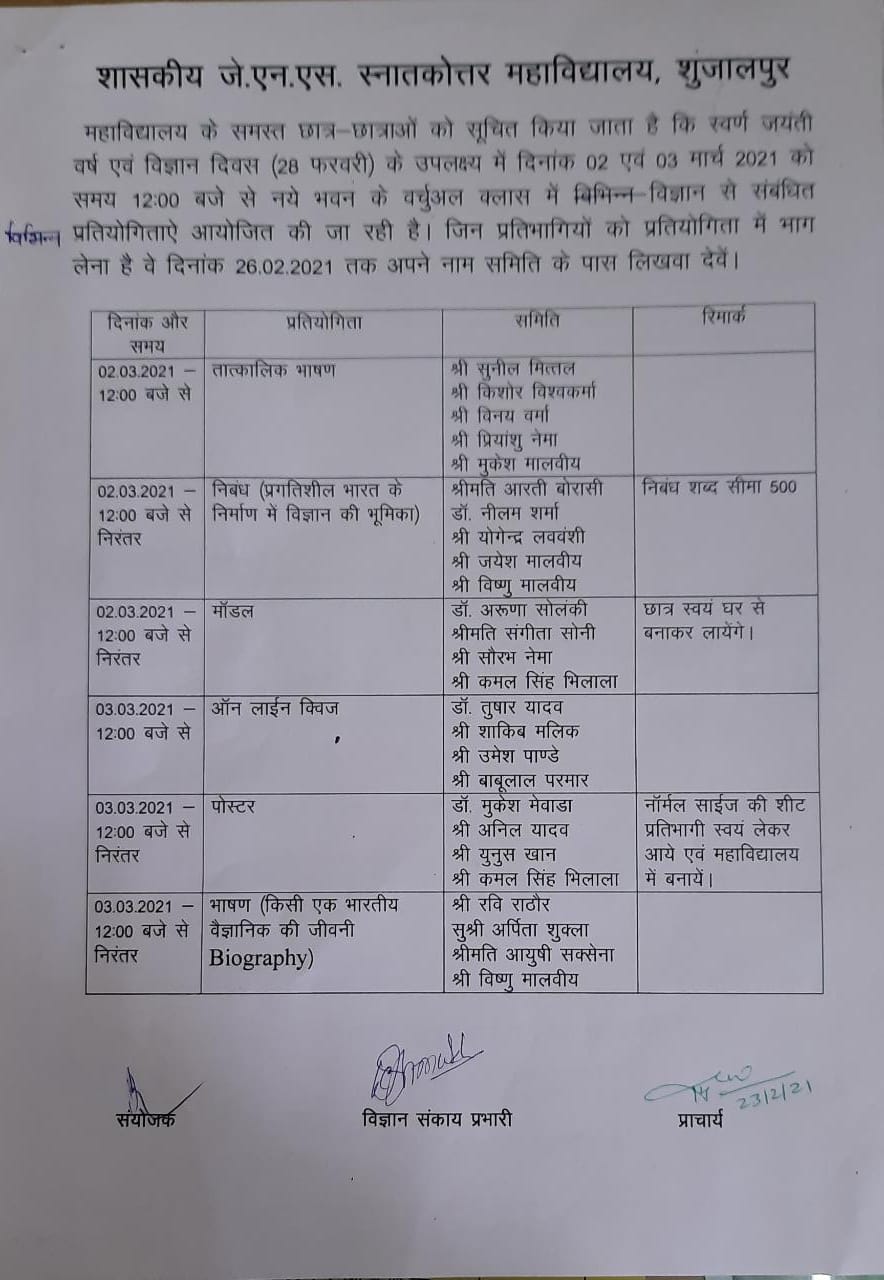 शासकीय जे.एन.एस. स्नातकोत्तर महाविद्यालय, शुजालपुर
महाविद्यालय के समस्त छात्र–छात्राओं को सूचित किया जाता है कि स्वर्ण जयंती
वर्ष एवं विज्ञान दिवस (28 फरवरी) के उपलक्ष्य में दिनांक 02 एवं 03 मार्च 2021 को
समय 12:00 बजे से नये भवन के वर्चुअल क्लास में बिभिन्न विज्ञान से संबंधित
विभिन्न प्रतियोगिताऐ आयोजित की जा रही है। जिन प्रतिभागियों को प्रतियोगिता में भाग
लेना है वे दिनांक 26.02.2021 तक अपने नाम समिति के पास लिखवा देवें।
दिनांक और
समय
प्रतियोगिता
समिति
रिमार्क
02.03.2021 –
12:00 बजे से
तात्कालिक भाषण
श्री सुनील मित्तल
श्री किशोर विश्वकर्मा
श्री विनय वर्मा
श्री प्रियांशु नेमा
श्री मुकेश मालवीय
02.03.2021 –
12:00 बजे से
निरंतर
निबंध (प्रगतिशील भारत के
निर्माण में विज्ञान की भूमिका)
श्रीमति आरती बोरासी
डॉ. नीलम शर्मा
श्री योगेन्द्र लववंशी
श्री जयेश मालवीय
श्री विष्णु मालवीय
निबंध शब्द सीमा 500
02.03.2021 –
12:00 बजे से
निरंतर
मॉडल
डॉ. अरूणा सोलंकी
श्रीमति संगीता सोनी
श्री सौरभ नेमा
श्री कमल सिंह भिलाला
छात्र स्वयं घर से
बनाकर लायेंगे।
03.03.2021 –
12:00 बजे से
ऑन लाईन क्विज
डॉ. तुषार यादव
श्री शाकिब मलिक
श्री उमेश पाण्डे
श्री बाबूलाल परमार
03.03.2021 –
12:00 बजे से
निरंतर
पोस्टर
डॉ. मुकेश मेवाडा
श्री अनिल यादव
श्री युनुस खान
श्री कमल सिंह भिलाला
नॉर्मल साईज की शीट
प्रतिभागी स्वयं लेकर
आये एवं महाविद्यालय
में बनायें।
03.03.2021 –
12:00 बजे से
निरंतर
भाषण (किसी एक भारतीय
वैज्ञानिक की जीवनी
Biography)
श्री रवि राठौर
सुश्री अर्पिता शुक्ला
श्रीमति आयुषी सक्सेना
श्री विष्णु मालवीय
23/2/21
संयोजक
विज्ञान संकाय प्रभारी
प्राचार्य